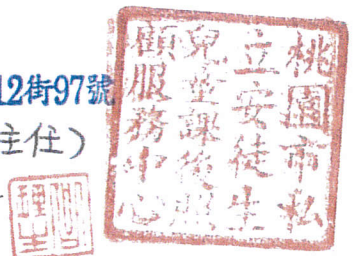 12街97號
主任)
桃園市私
立安徒生
兒童課後照
顧服務中心